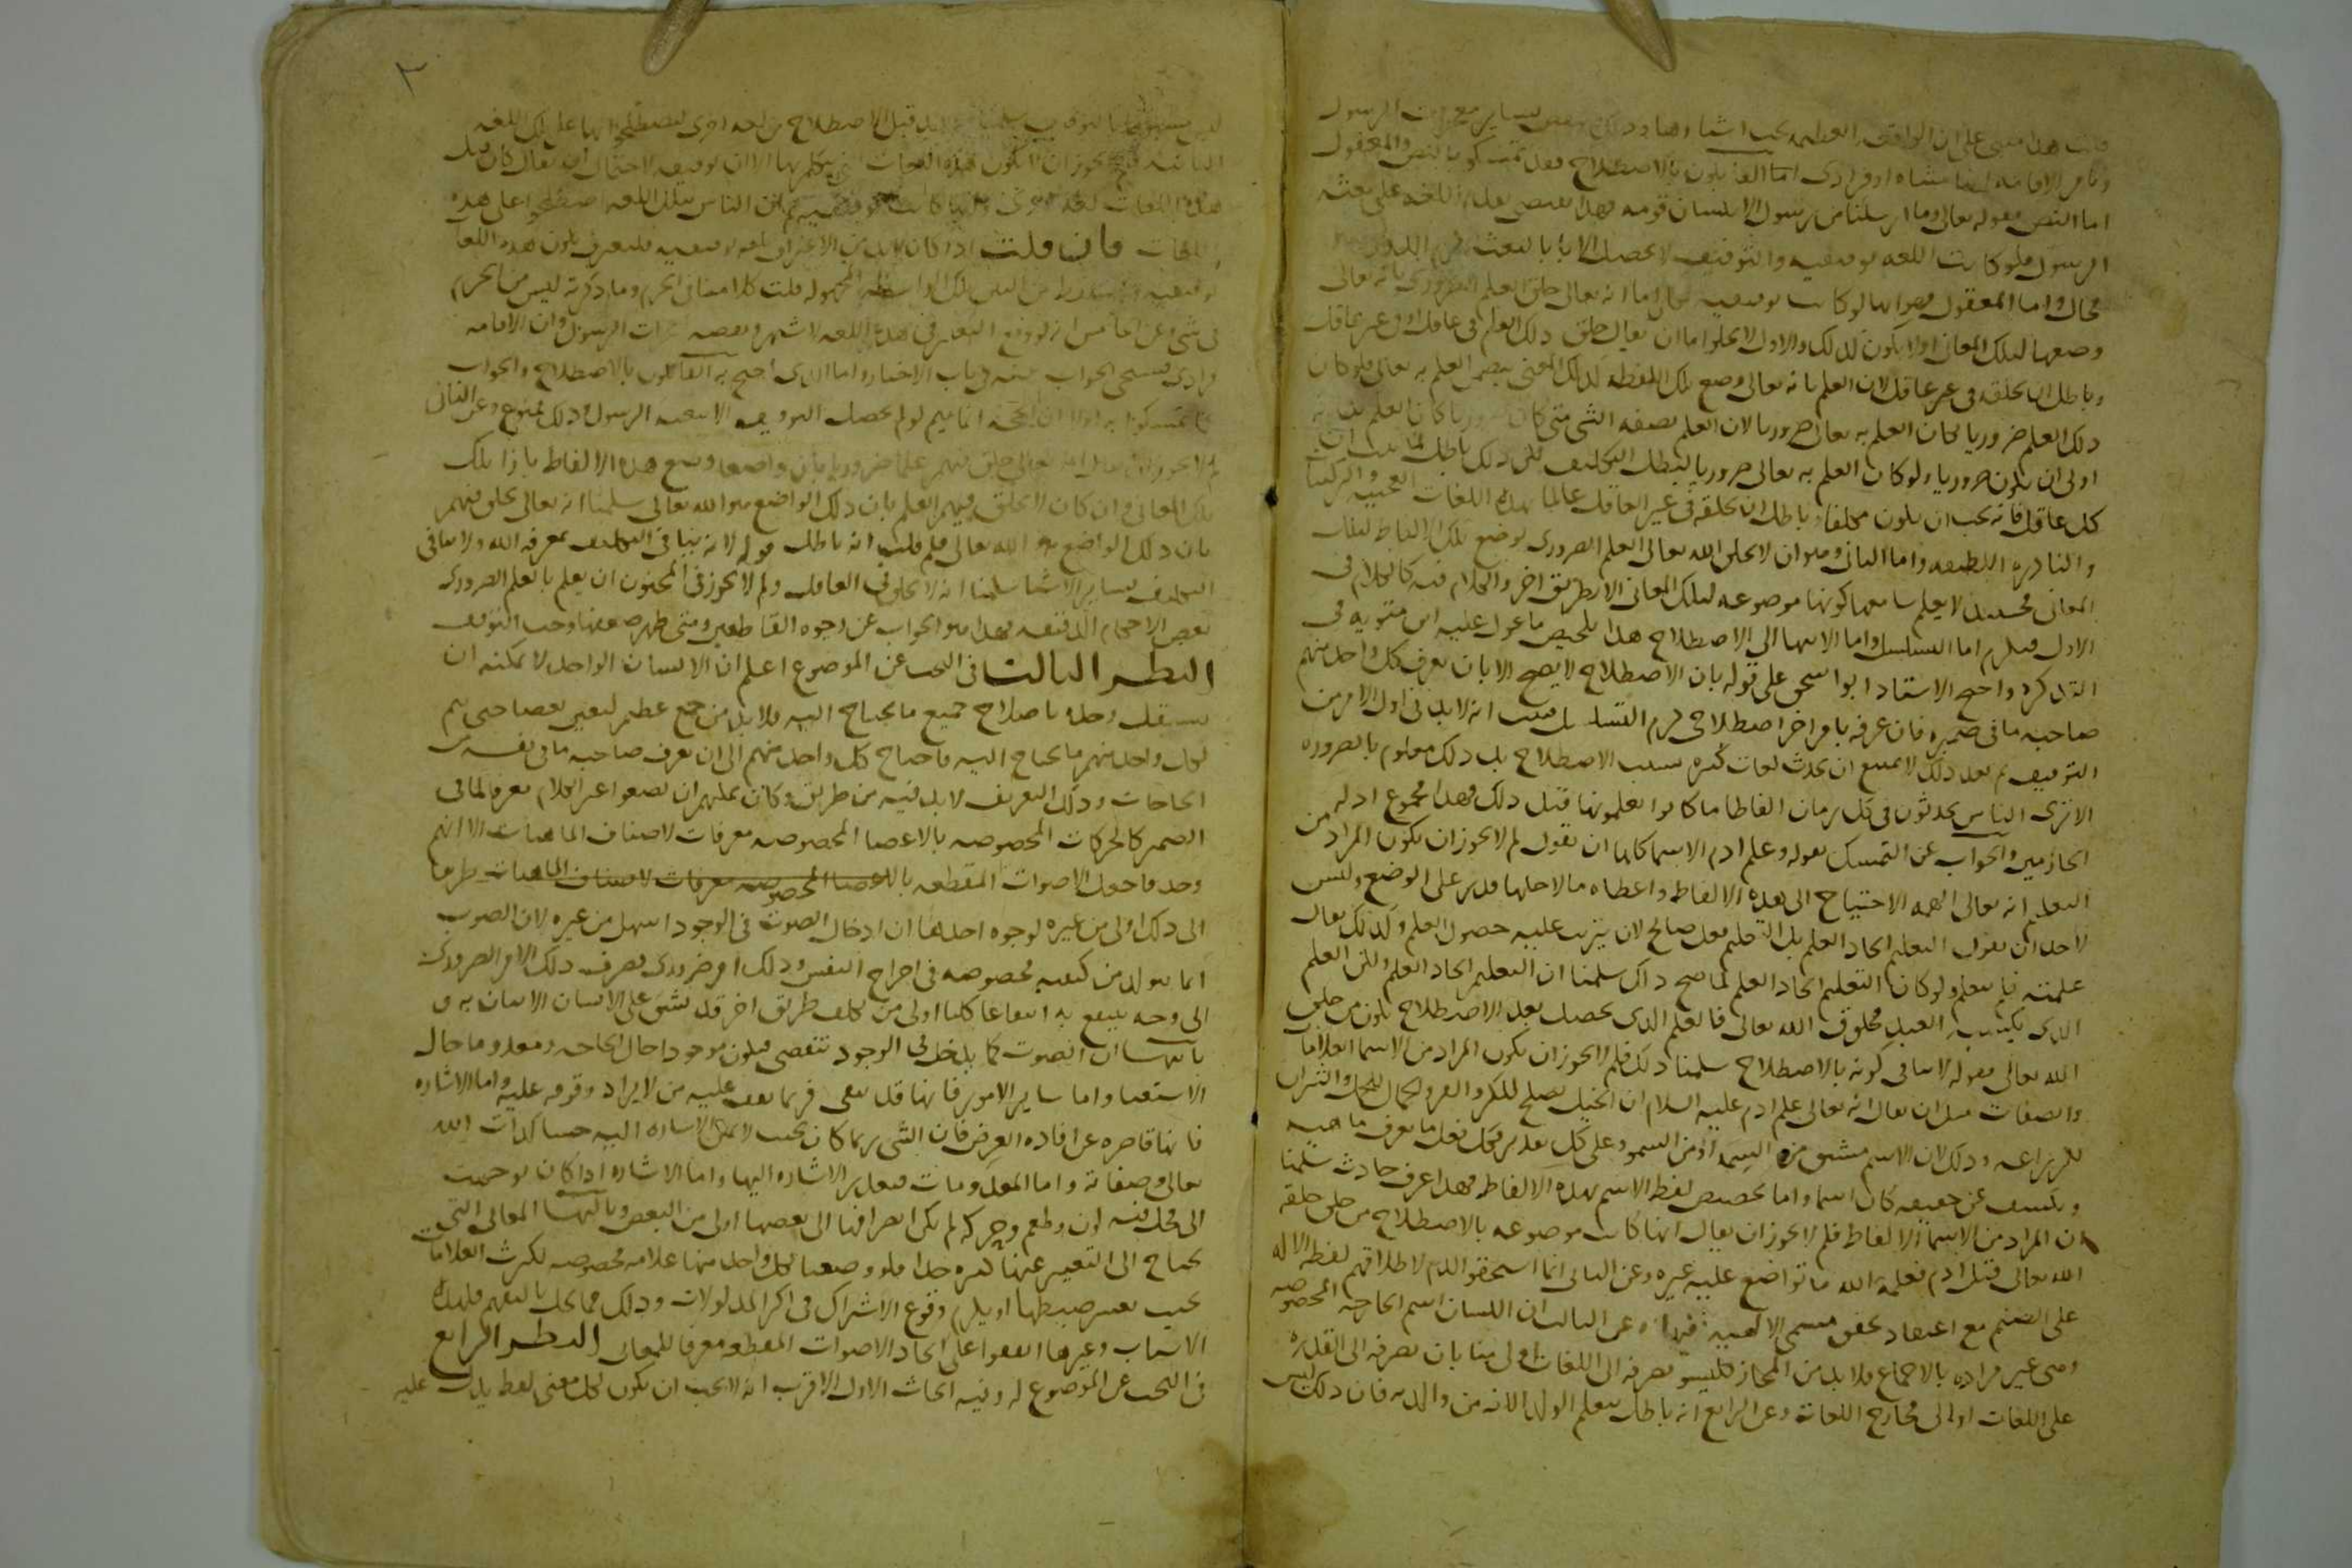 قلت هذا مبنى على ان الواقعه العظيمه يجب اشتهارها وذلك بسائر معجزات الرسول
وبامر الاقامه انها مثناه او فرادى اما القائلون بالاصطلاح فقد تمسكوا بالنص والمعقول
اما النص فقوله تعالى وما ارسلنا من رسول الا بلسان قومه فهذا يقتضى تقدم اللغه على بعثه
الرسول فلو كانت اللغه توقيفيه والتوقيف لا يحصل الا بالبعثه لزم الدور
محال واما المعقول فهو انها لو كانت توقيفيه لكان اما انه تعالى خلق العلم الضرورى بانه تعالى
وضعها لتلك المعانى او لا يكون كذلك والاول لا يخلو اما ان يقال خلق ذلك العلم فى عاقل او فى غير عاقل
وباطل ان يخلقه فى غير عاقل لان العلم بانه تعالى وضع تلك اللفظه لذلك المعنى يتضمن العلم به تعالى فلو كان
ذلك العلم ضروريا لكان العلم به تعالى ضروريا لان العلم بصفه الشى متى كان ضروريا كان العلم بذاته
اولى ان يكون ضروريا ولو كان العلم به تعالى ضروريا لبطل التكليف لكن ذلك باطل لما ثبت ان
كل عاقل فانه يجب ان يكون مكلفا وباطل ان يخلقه فى غير العاقل عالما بهذه اللغات العجيبه والتركيبات
والنادره اللطيفه واما الثانى وهو ان لا يخلق الله تعالى العلم الضرورى بوضع تلك الالفاظ لتلك
المعانى فحينئذ لا يعلم سامعها كونها موضوعه لتلك المعانى الا بطريق اخر والكلام فيه كالكلام فى
الاول فيلزم اما التسلسل واما الانتها الى الاصطلاح هذا تلخيص ما عول عليه ابن متويه فى
التذكره واحتج الاستاد ابو اسحق على قوله بان الاصطلاح لا يصح الا بان يعرف كل واحد منهم
صاحبه ما فى ضميره فان عرفه بامر اخر اصطلاحى لزم التسلسل فثبت انه لابد فى اول الامر من
التوقيف ثم بعد ذلك لا يمتنع ان يحدث لغات كثيره بسبب الاصطلاح بل ذلك معلوم بالضروره
الا ترى الناس يحدثون فى كل زمان الفاظا ما كانوا يعلمونها قبل ذلك فهذا مجموع ادله
الجازمين والجواب عن التمسك بقوله وعلم ادم الاسما كلها ان نقول لم لا يجوز ان يكون المراد من
التعليم انه تعالى الهمه الاحتياج الى هذه الالفاظ واعطاه ما لاجلها قدر على الوضع وليس
لاحد ان يقول التعليم ايجاد العلم بل التعليم فعل صالح لان يترتب عليه حصول العلم وكذلك يقال
علمته فلم يتعلم ولو كان التعليم ايجاد العلم لما صح ذلك سلمنا ان التعليم ايجاد العلم ولكن العلم
الذى يكتسبه العبد مخلوق الله تعالى فالعلم الذى يحصل بعد الاصطلاح يكون من خلق
الله تعالى فقوله لا ينافى كونه بالاصطلاح سلمنا ذلك فلم لا يجوز ان يكون المراد من الاسما العلامات
والصفات مثل ان يقال انه تعالى علم ادم عليه السلام ان الخيل يصلح للكر والفر والجمال للحمل والثيران
للزراعه وذلك لان الاسم مشتق من السمه او من السمو وعلى كل تقدير فكل فعل ما يعرف ماهيه
ويكشف عن حقيقه كان اسما واما تخصيص لفظ الاسم بهذه الالفاظ فهذا عرف حادث سلمنا
ان المراد من الاسما الالفاظ فلم لا يجوز ان يقال انها كانت موضوعه بالاصطلاح من خلق خلقه
الله تعالى قبل ادم فعلمه الله ما تواضع عليه غيره وعن الثانى انما استحقوا الذم لاطلاقهم لفظه الاله
على الصنم مع اعتقاد تحقق مسمى الالهيه فيها وعن الثالث ان اللسان اسم الجارحه المخصوصه
وهى غير مراده بالاجماع فلابد من المجاز فليسو تصرفه الى اللغات اولى منا بان تصرفه الى القدره
على اللغات او الى مخارج اللغات وعن الرابع انه باطل بتعلم الولد اللغه من والديه فان ذلك ليس
قبل الاصطلاح من لغه اخرى ليصطلحوا بها على تلك اللغه
الثانيه فلم يجوز ان لا تكون هذه اللغات التى نتكلم بها الان توقيفيه لاحتمال ان يقال كان قبل
هذه اللغات لغه اخرى وانها كانت توقيفيه ثم ان الناس بتلك اللغه اصطلحوا على هذه
اللغات فان قلت اذا كان لابد من الاعتراف بلغه توقيفيه فلنعترف بكون هذه اللغات
توقيفيه ونسقط من البين تلك الواسطه المجهوله قلت كلامنا فى الجزم وما ذكرته ليس من الجزم
فى شى وعن الخامس انه لو وقع التغير فى هذه اللغه لاشتهر ونقضه بمعجزات الرسول وان الاقامه
فرادى فسيجى الجواب عنه فى باب الاخبار واما الذى احتج به القائلون بالاصطلاح والجواب
عما تمسكوا به اولا ان الحجه انما تتم لو لم يحصل التوقيف الا ببعثه الرسول وذلك ممنوع وعن الثانى
لم لا يجوز ان يقال انه تعالى خلق فيهم علما ضروريا بان واضعا وضع هذه الالفاظ بازا تلك
تلك المعانى وان كان لا يخلق فيهم العلم بان ذلك الواضع هو الله تعالى سلمنا انه تعالى يخلق فيهم
بان ذلك الواضع هو الله تعالى فلم قلت انه باطل قوله لانه ينافى التكليف بمعرفه الله ولا ينافى
التكليف بسائر الاشيا سلمنا انه لا يخلق فى العاقل ولم لا يجوز فى المجنون ان يعلم بالعلم الضرورى
بعض الاحكام الدقيقه فهذا هو الجواب عن وجوه القاطعين ومتى ظهر ضعفها وجب التوقف
النظر الثالث فى البحث عن الموضوع اعلم ان الانسان الواحد لا يمكنه ان
يستقل وحده باصلاح جميع ما يحتاج اليه فلابد من جمع عظيم ليعين بعضا حتى يتم
لكل واحد منهم ما يحتاج اليه فاحتاج كل واحد منهم الى ان يعرف صاحبه ما فى نفسه من
الحاجات وذلك التعريف لابد فيه من طريق وكان يمكنهم ان يضعوا غير الكلام معرفا لما فى
الضمير كالحركات المخصوصه بالاعضا المخصوصه معرفات لاصناف الماهيات الا انهم
وجدوا جعل الاصوات المقطعه بالاعضا المخصوصه معرفات لاصناف الماهيات طريقا
الى ذلك اولى من غيره لوجوه احدها ان ادخال الصوت فى الوجود اسهل من غيره لان الصوت
انما يتولد من كيفيه مخصوصه فى اخراج النفس وذلك امر ضرورى فصرف ذلك الامر الضرورى
الى وجه ينتفع به انتفاعا كليا اولى من تكلف طريق اخر قد يشق على الانسان الاتيان به و
ثانيها ان الصوت كما يدخل فى الوجود ينقضى فيكون موجودا حال الحاجه ومعدوما حال
الاستغنا واما سائر الامور فانها قد تبقى فربما يقف عليه من لا يراد وقوفه عليه واما الاشاره
فانها قاصره عن افاده الغرض فان الشى ربما كان بحيث لا يمكن الاشاره اليه حسا كذات الله
تعالى وصفاته واما المعدومات فتعذر الاشاره اليها واما الاشاره اذا كان توجهت
الى محل فيه لون وطعم وحركه لم يكن انصرافها الى بعضها اولى من البعض وثالثها المعانى التى
يحتاج الى التعبير عنها كثيره جدا فلو وضعنا لكل واحد منها علامه مخصوصه لكثرت العلامات
بحيث يعسر ضبطها او يلزم وقوع الاشتراك فى اكثر المدلولات وذلك مما يخل بالتفهم فلهذه
الاسباب وغيرها اتفقوا على اتخاذ الاصوات المقطعه معرفا للمعانى النظر الرابع
فى البحث عن الموضوع له وفيه ابحاث الاول الاقرب انه لا يجب ان يكون لكل معنى لفظ يدل عليه